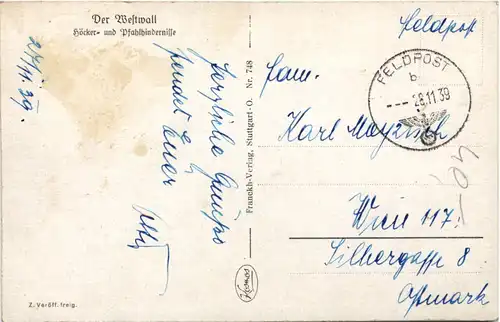 Der Westwall
Höcker- und Pfahlhindernisse
27/11. 39.
Herzliche Grüße
sendet Euer
Z. Veröff. freig.
Franckh-Verlag, Stuttgart-O. Nr. 748
Feldpost
FELDPOST
b
--- 28.11.39
Fam.
Karl
Wien 117.
Silbergasse 8
Ostmark